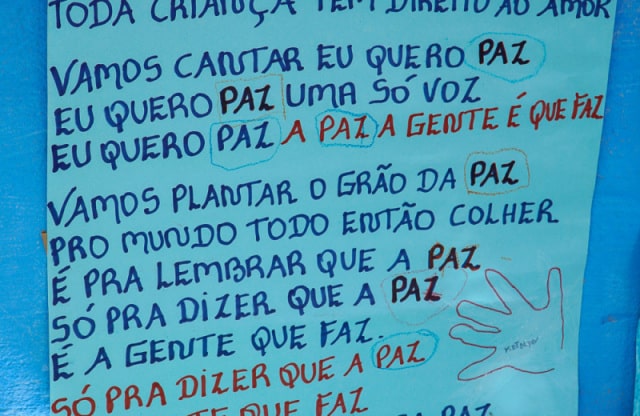 TODA CRIANÇA TEM DIREITO AO AMOR
VAMOS CANTAR EU QUERO PAZ
EU QUERO PAZ UMA SÓ VOZ
EU QUERO PAZ A PAZ A GENTE É QUE FAZ
VAMOS PLANTAR O GRÃO DA PAZ
PRO MUNDO TODO ENTÃO COLHER
É PRA LEMBRAR QUE A PAZ
SÓ PRA DIZER QUE A PAZ
É A GENTE QUE FAZ.
SÓ PRA DIZER QUE A PAZ
GENTE QUE FAZ
PAZ